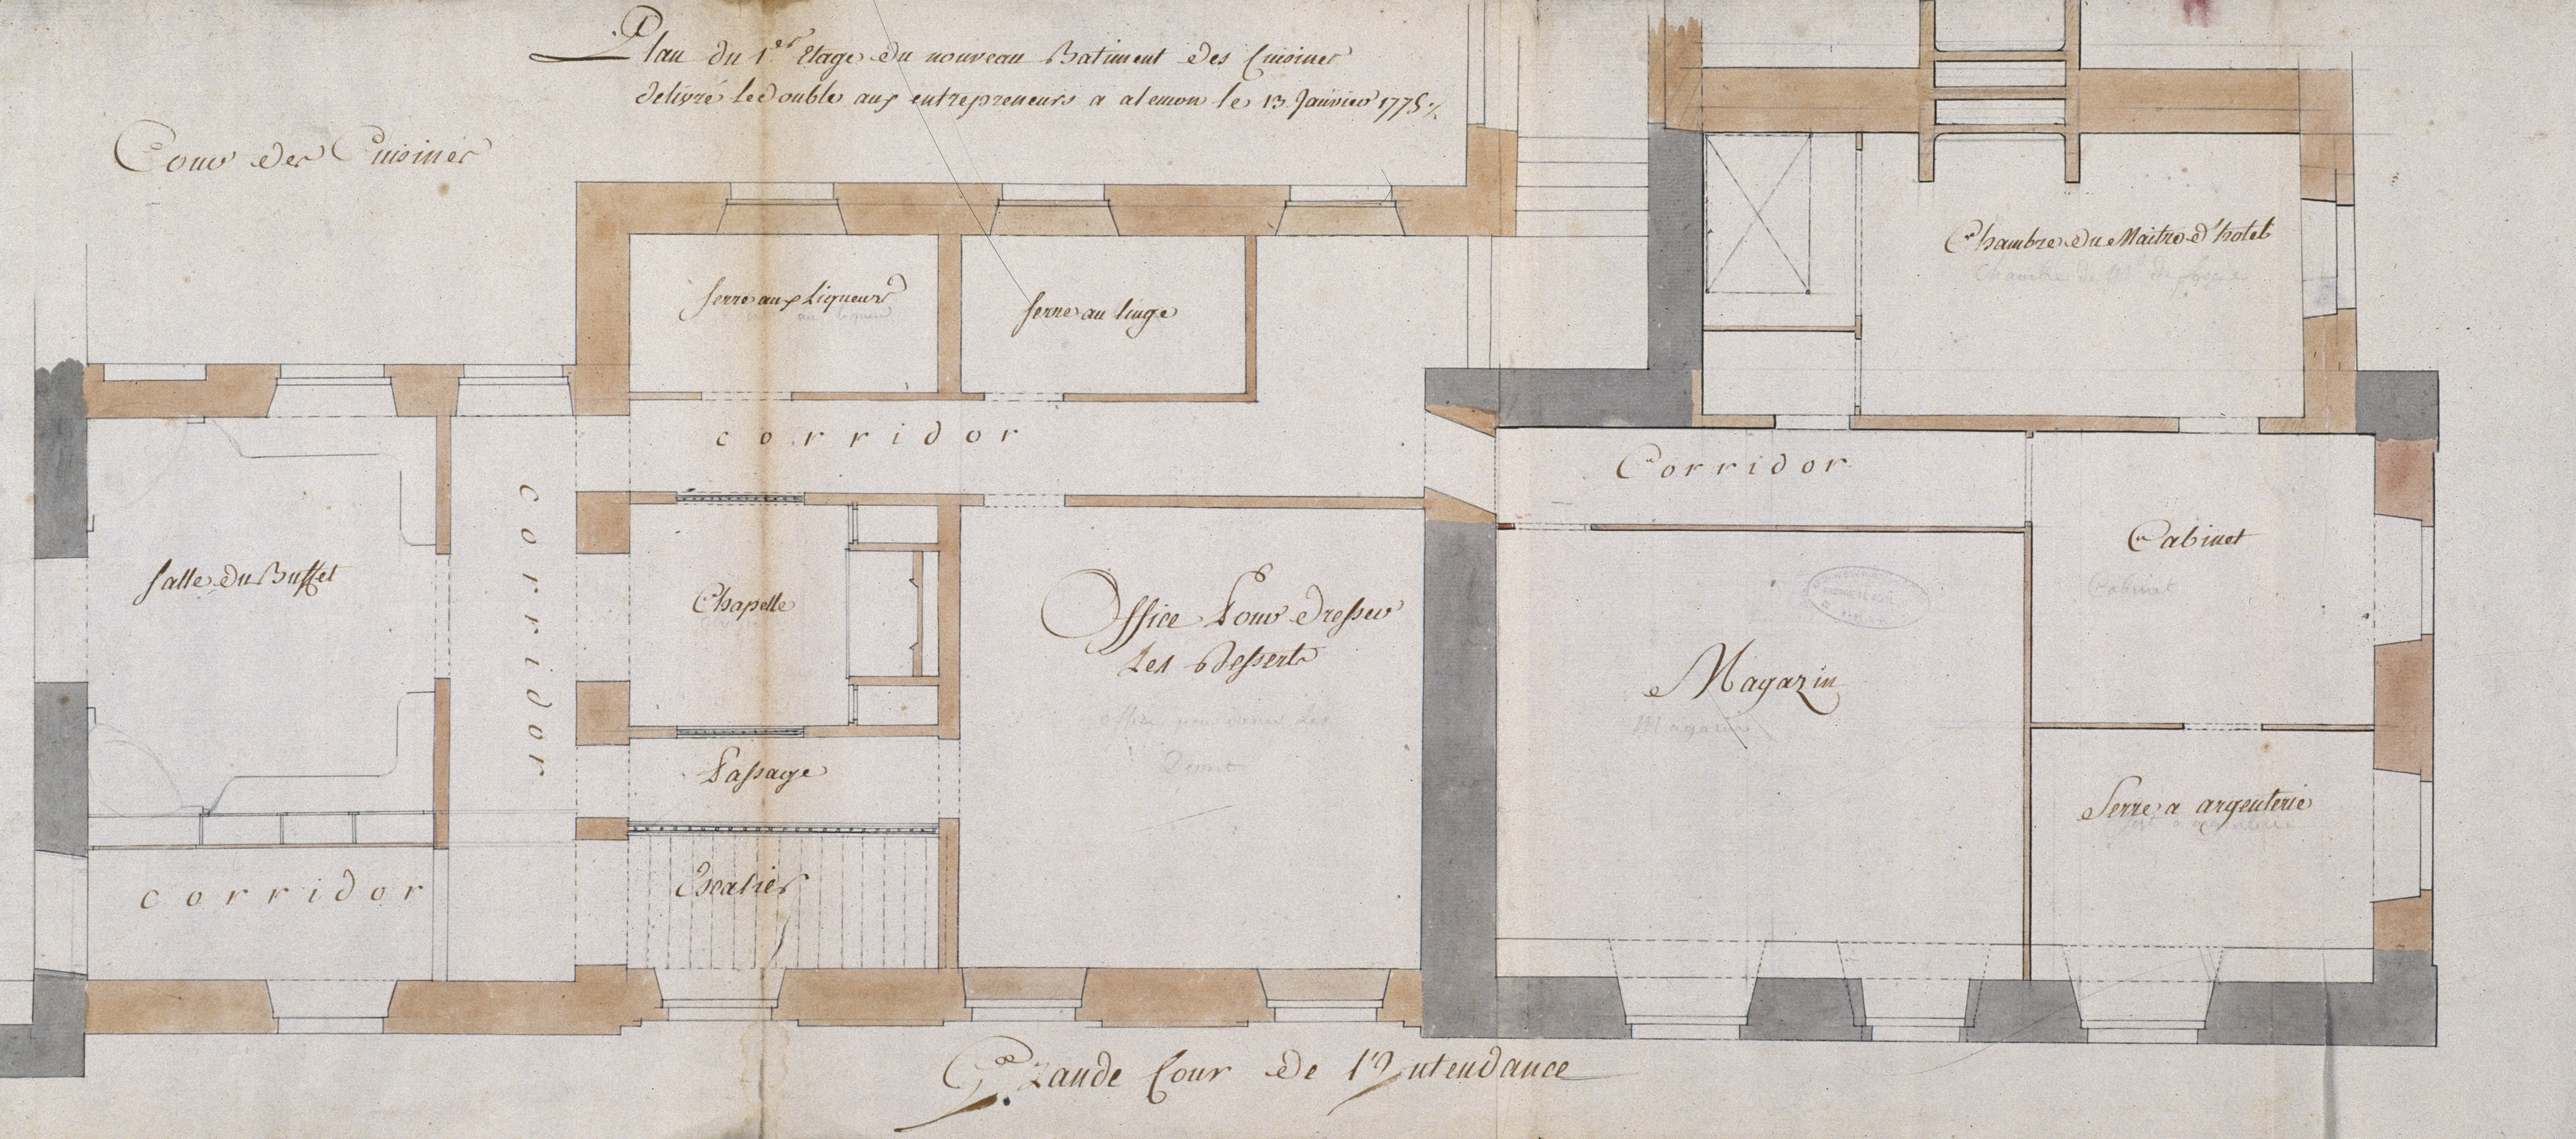 Plan du 1.er Etage du nouveau Batiment des Cuisines
delivré le double aux entrepreneurs a alemon le 13 Janvier 1775
Cour des Cuisines
Chambre du Maitre d'hotel
Chambre de
serre aux Liqueurs
serre au linge
corridor
Corridor
corridor
Salle du Buffet
Chapelle
Office Pour dresser
Les Desserts
office pour dresser les
Dessert
Cabinet
Cabinet
Magazin
Magazin
Passage
Serre a argenterie
Escalier
corridor
Grande Cour de l'Intendance